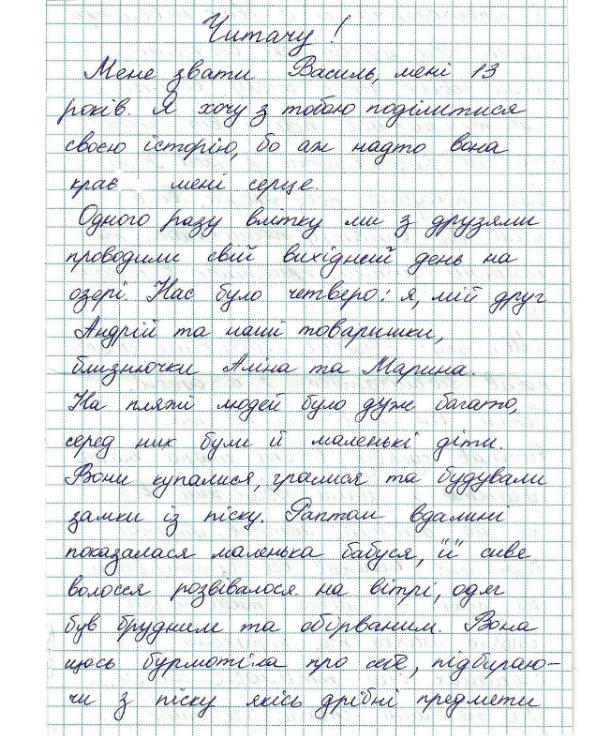 Читачу!
Мене звати Василь, мені 13
років. Я хочу з тобою поділитися
своєю історією, бо аж надто вона
крає мені серце.
Одного разу влітку ми з друзями
проводили свій вихідний день на
озері. Нас було четверо: я, мій друг
Андрій та наші товаришки,
близнючки Аліна та Марина.
На пляжі людей було дуже багато,
серед них були й маленькі діти.
Вони купалися, гралися та будували
замки із піску. Раптом вдалині
показалася маленька бабуся, її сиве
волосся розвівалося на вітрі, одяг
був брудним та обірваним. Вона
щось бурмотіла про себе, підбираю-
чи з піску якісь дрібні предмети